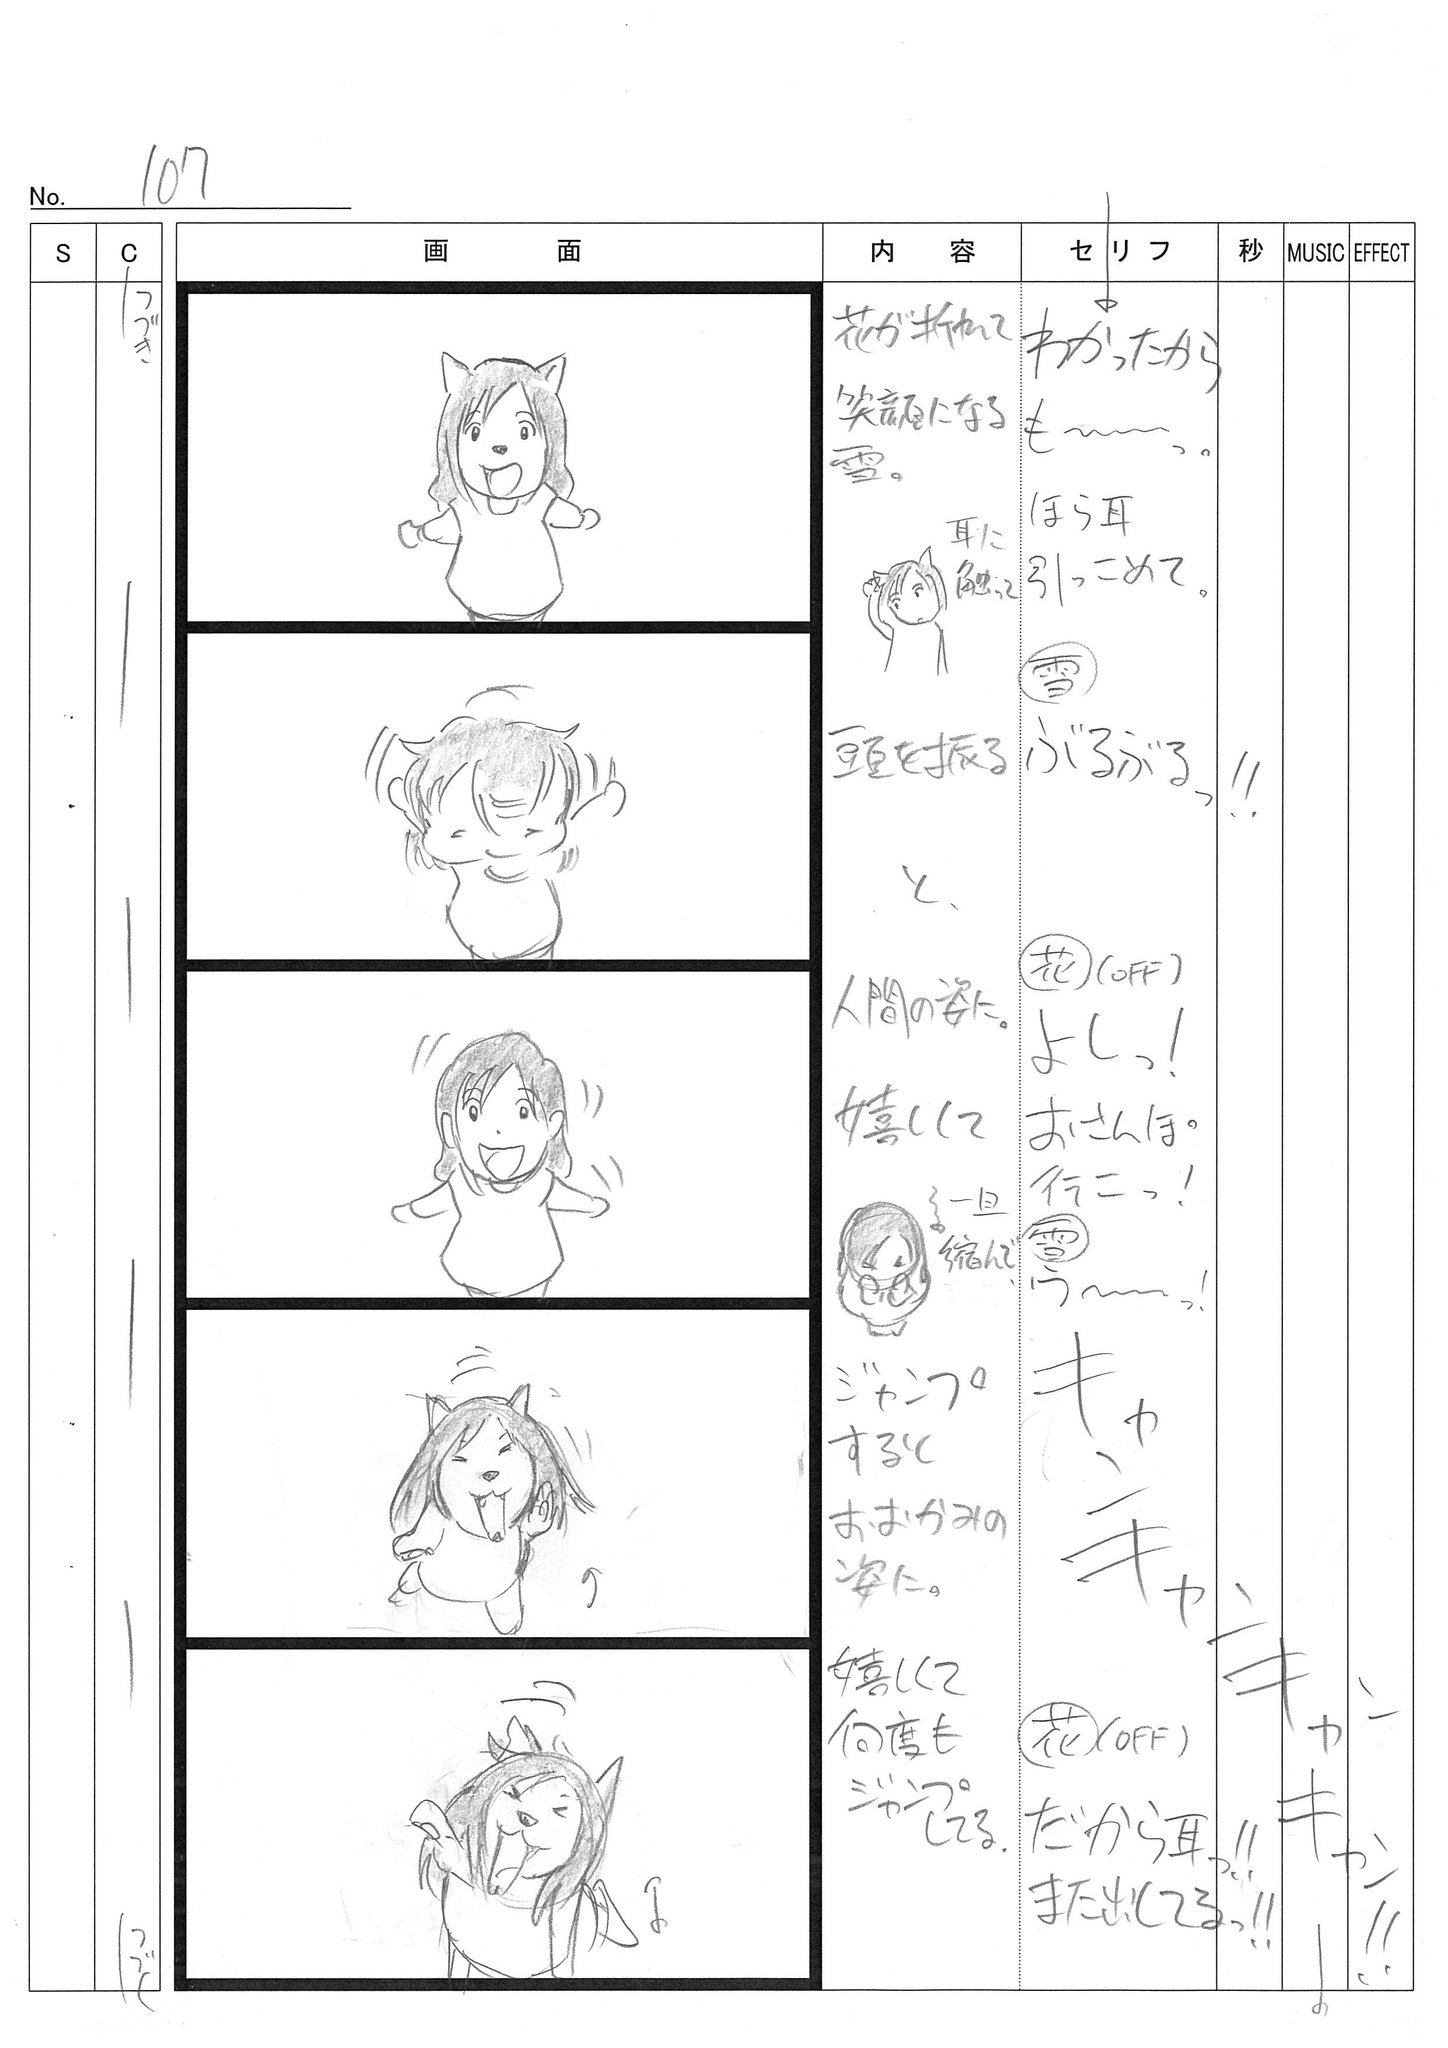 No. 107
S
C
画面
内容
セリフ
秒
MUSIC
EFFECT
つづき
花が折れて
笑顔になる
雪。
耳に
触って
頭を振る
と、
人間の姿に。
嬉しくて
一旦
縮んで
ジャンプ
すると
おおかみの
姿に。
嬉しくて
何度も
ジャンプ
してる。
わかったから
も〜〜〜っ。
ほら耳
引っこめて。
雪
ぶるぶるっ!!
花(OFF)
よしっ!
おさんぽ。
行こっ!
雪
う〜〜〜っ!
キャン
キャン
キャン
キャン!!
花(OFF)
だから耳っ!!
また出してるっ!!
つづく